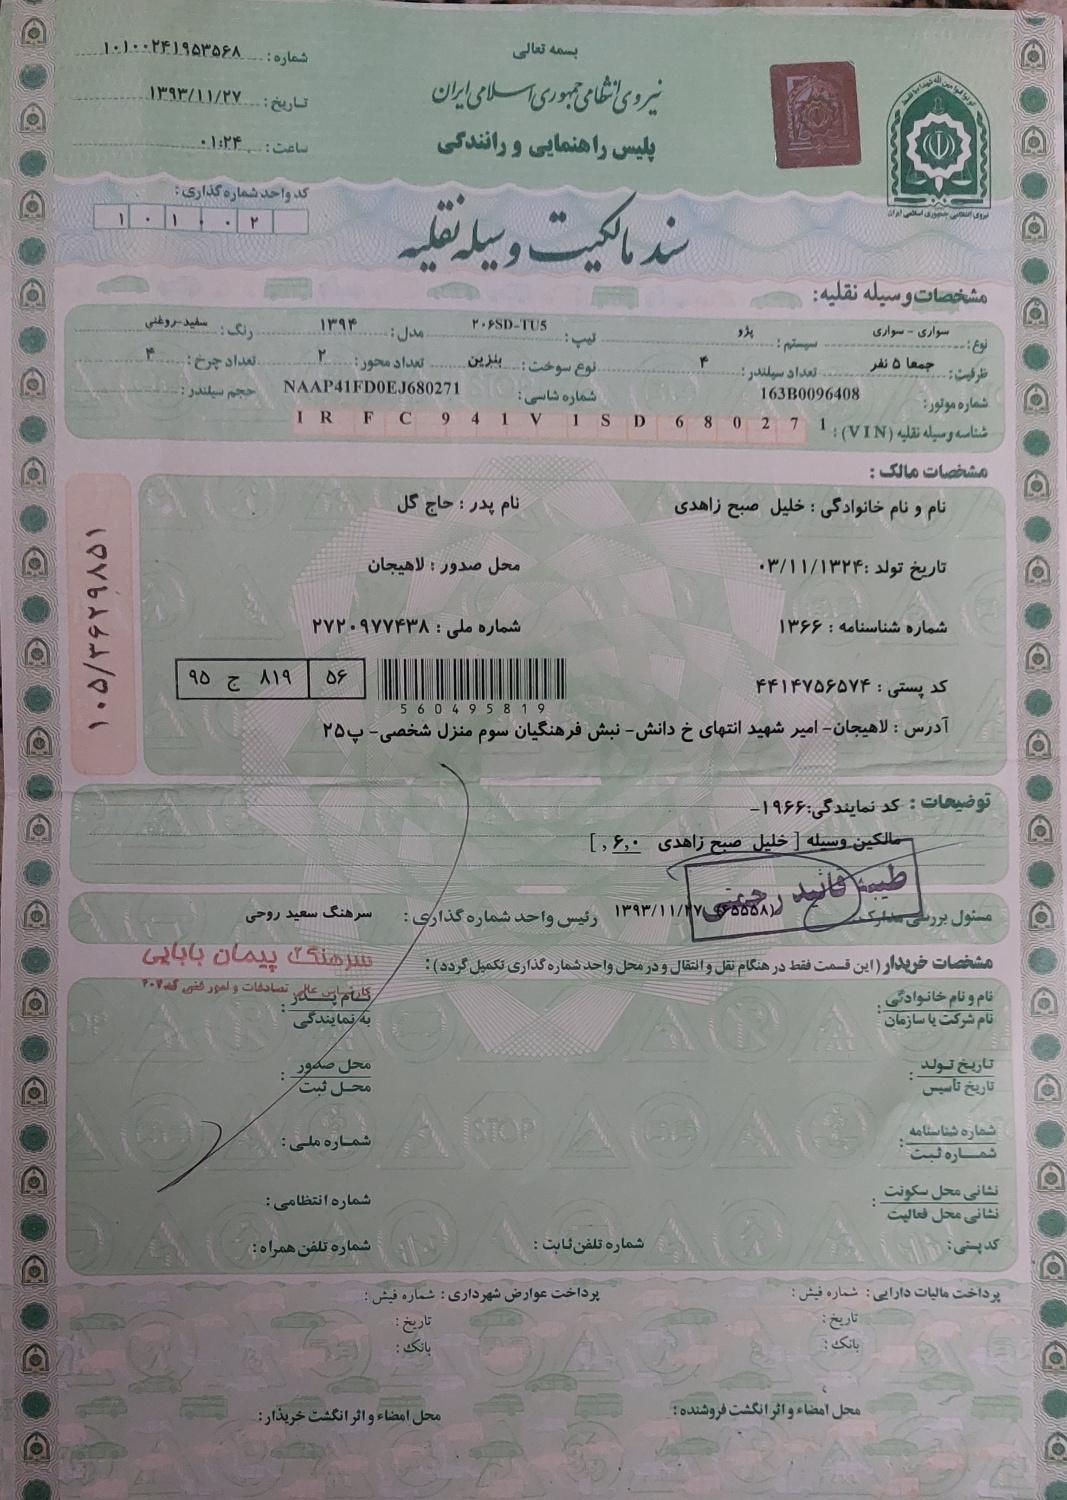 بسمه تعالی
نیروی انتظامی جمهوری اسلامی ایران
پلیس راهنمایی و رانندگی
شماره: ۱۰۱۰۰۲۴۱۹۵۳۵۶۸
تاریخ: ۱۳۹۳/۱۱/۲۷
ساعت: ۰۱:۲۴
کد واحد شماره گذاری:
۱ ۰ ۱ ۰ ۲
نیروی انتظامی جمهوری اسلامی ایران
سند مالکیت وسیله نقلیه
مشخصات وسیله نقلیه:
نوع: سواری - سواری سیستم: پژو تیپ: ۲۰۶SD-TU5 مدل: ۱۳۹۴ رنگ: سفید-روغنی
ظرفیت: جمعا ۵ نفر تعداد سیلندر: ۴ نوع سوخت: بنزین تعداد محور: ۲ تعداد چرخ: ۴
شماره موتور: 163B0096408 شماره شاسی: NAAP41FD0EJ680271 حجم سیلندر:
شناسه وسیله نقلیه (VIN): I R F C 9 4 1 V 1 S D 6 8 0 2 7 1
مشخصات مالک:
نام و نام خانوادگی : خلیل صبح زاهدی نام پدر : حاج گل
تاریخ تولد :۰۳/۱۱/۱۳۲۴ محل صدور : لاهیجان
شماره شناسنامه : ۱۳۶۶ شماره ملی : ۲۷۲۰۹۷۷۴۳۸
کد پستی : ۴۴۱۴۷۵۶۵۷۴
560495819
۵۶ ۸۱۹ ج ۹۵
آدرس : لاهیجان- امیر شهید انتهای خ دانش- نبش فرهنگیان سوم منزل شخصی- پ۲۵
۱۰۵/۳۶۲۹۸۵۱
توضیحات : کد نمایندگی:۱۹۶۶-
مالکین وسیله [ خلیل صبح زاهدی ۶,۰ , ]
مسئول بررسی مدارک ۱۳۹۳/۱۱/۲۷ رئیس واحد شماره گذاری: سرهنگ سعید روحی
سرهنگ۲ پیمان بابایی
کارشناس عالی تصادفات و امور فنی کد۲۰۲
مشخصات خریدار (این قسمت فقط در هنگام نقل و انتقال و در محل واحد شماره گذاری تکمیل گردد):
نام و نام خانوادگی نام پدر
نام شرکت یا سازمان : به نمایندگی :
تاریخ تولد محل صدور
تاریخ تأسیس : محل ثبت :
شماره شناسنامه
شماره ثبت : شماره ملی :
نشانی محل سکونت
نشانی محل فعالیت : شماره انتظامی :
کدپستی: شماره تلفن ثابت : شماره تلفن همراه :
پرداخت مالیات دارایی : شماره فیش : پرداخت عوارض شهرداری : شماره فیش :
تاریخ : تاریخ :
بانک : بانک :
محل امضاء و اثر انگشت فروشنده : محل امضاء و اثر انگشت خریدار:
STOP